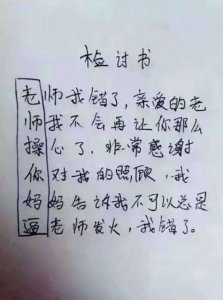 检讨书
老师我错了，亲爱的老
师我不会再让你那么
操心了，非常感谢
你对我的照顾，我
妈妈告诉我不可以总是
逼老师发火，我错了。